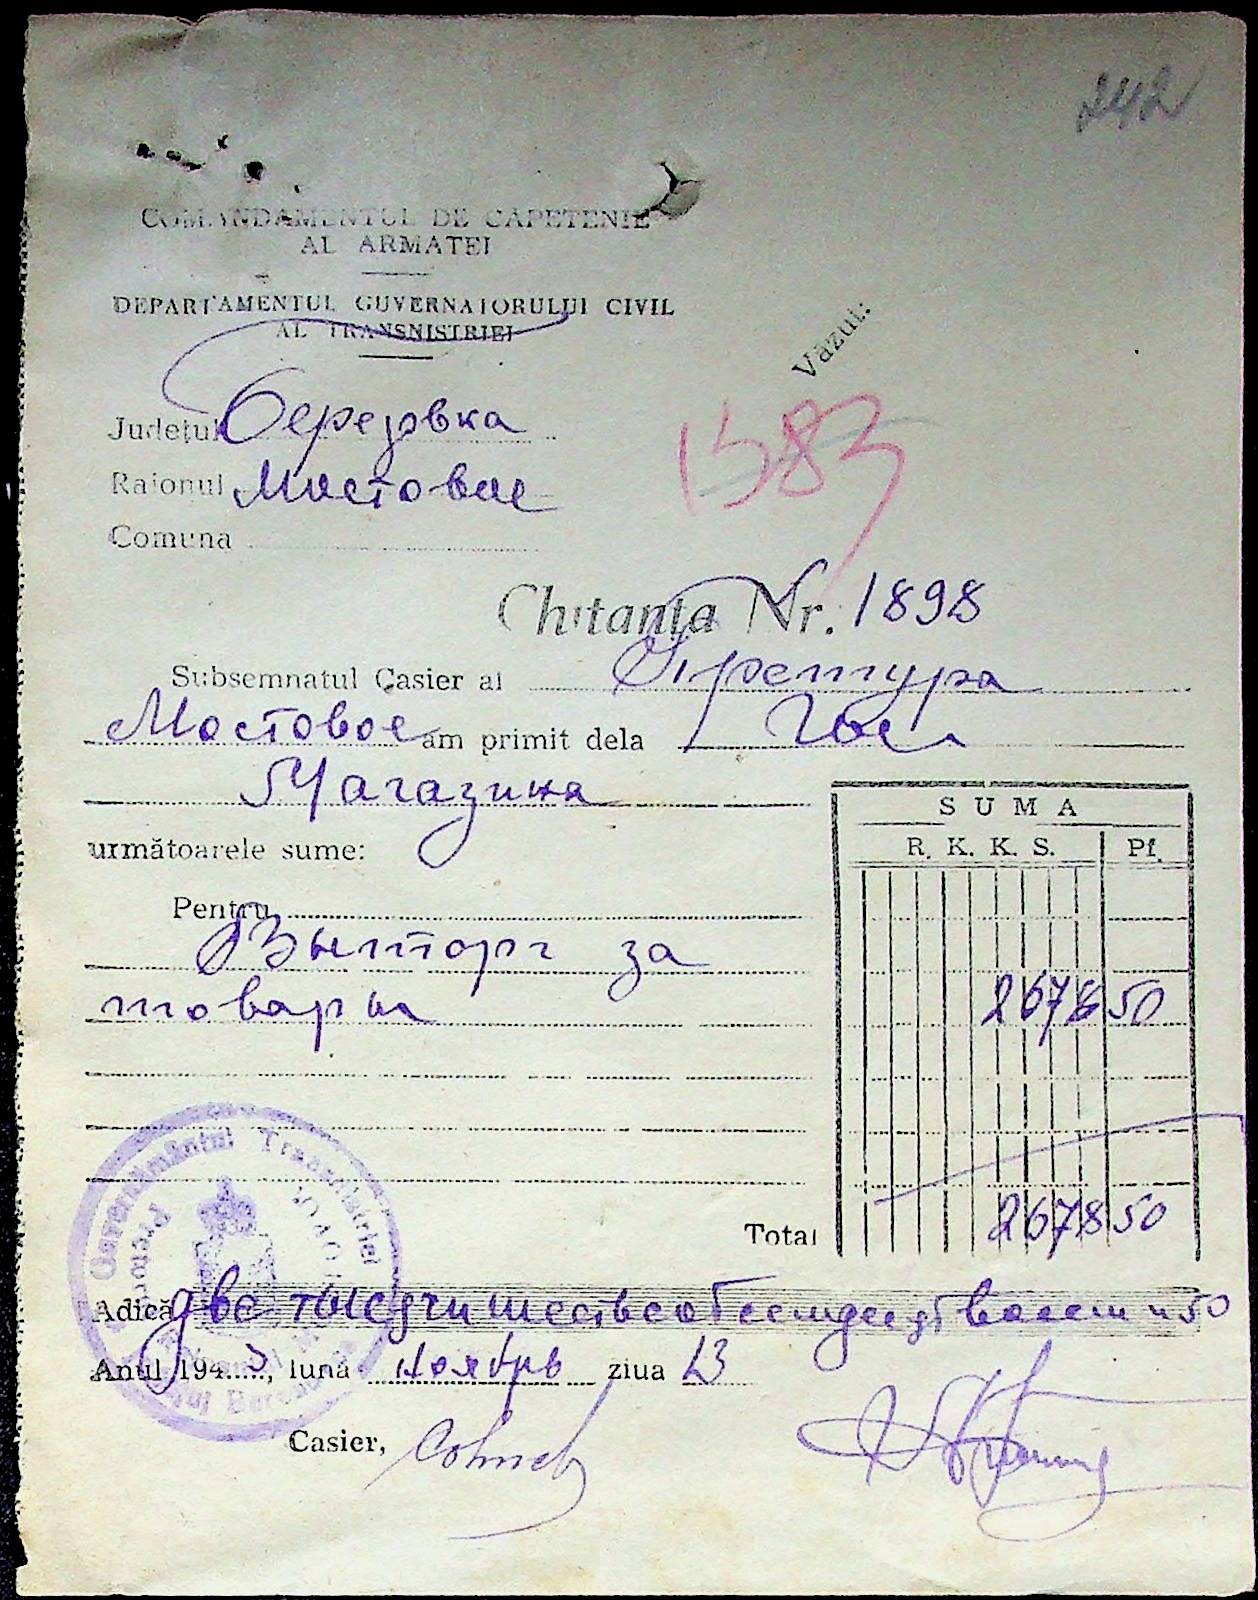 242
COMANDAMENTUL DE CAPETENIE
AL ARMATEI
DEPARTAMENTUL GUVERNATORULUI CIVIL
AL TRANSNISTRIEI
Văzut:
Județul Березовка
1583
Raionul Мостовое
Comuna
Chitanța Nr. 1898
Subsemnatul Casier al Претура
Мостовое am primit dela Гос
Магазина
următoarele sume:
SUMA
R. K. K. S. Pf.
Pentru
Выторг за
товары 2678 50
Total 2678 50
Guvernământul Transnistriei
Adică две тысячи шестьсот семьдесят восем и 50
Anul 1943, luna ноябрь ziua 23
Casier,